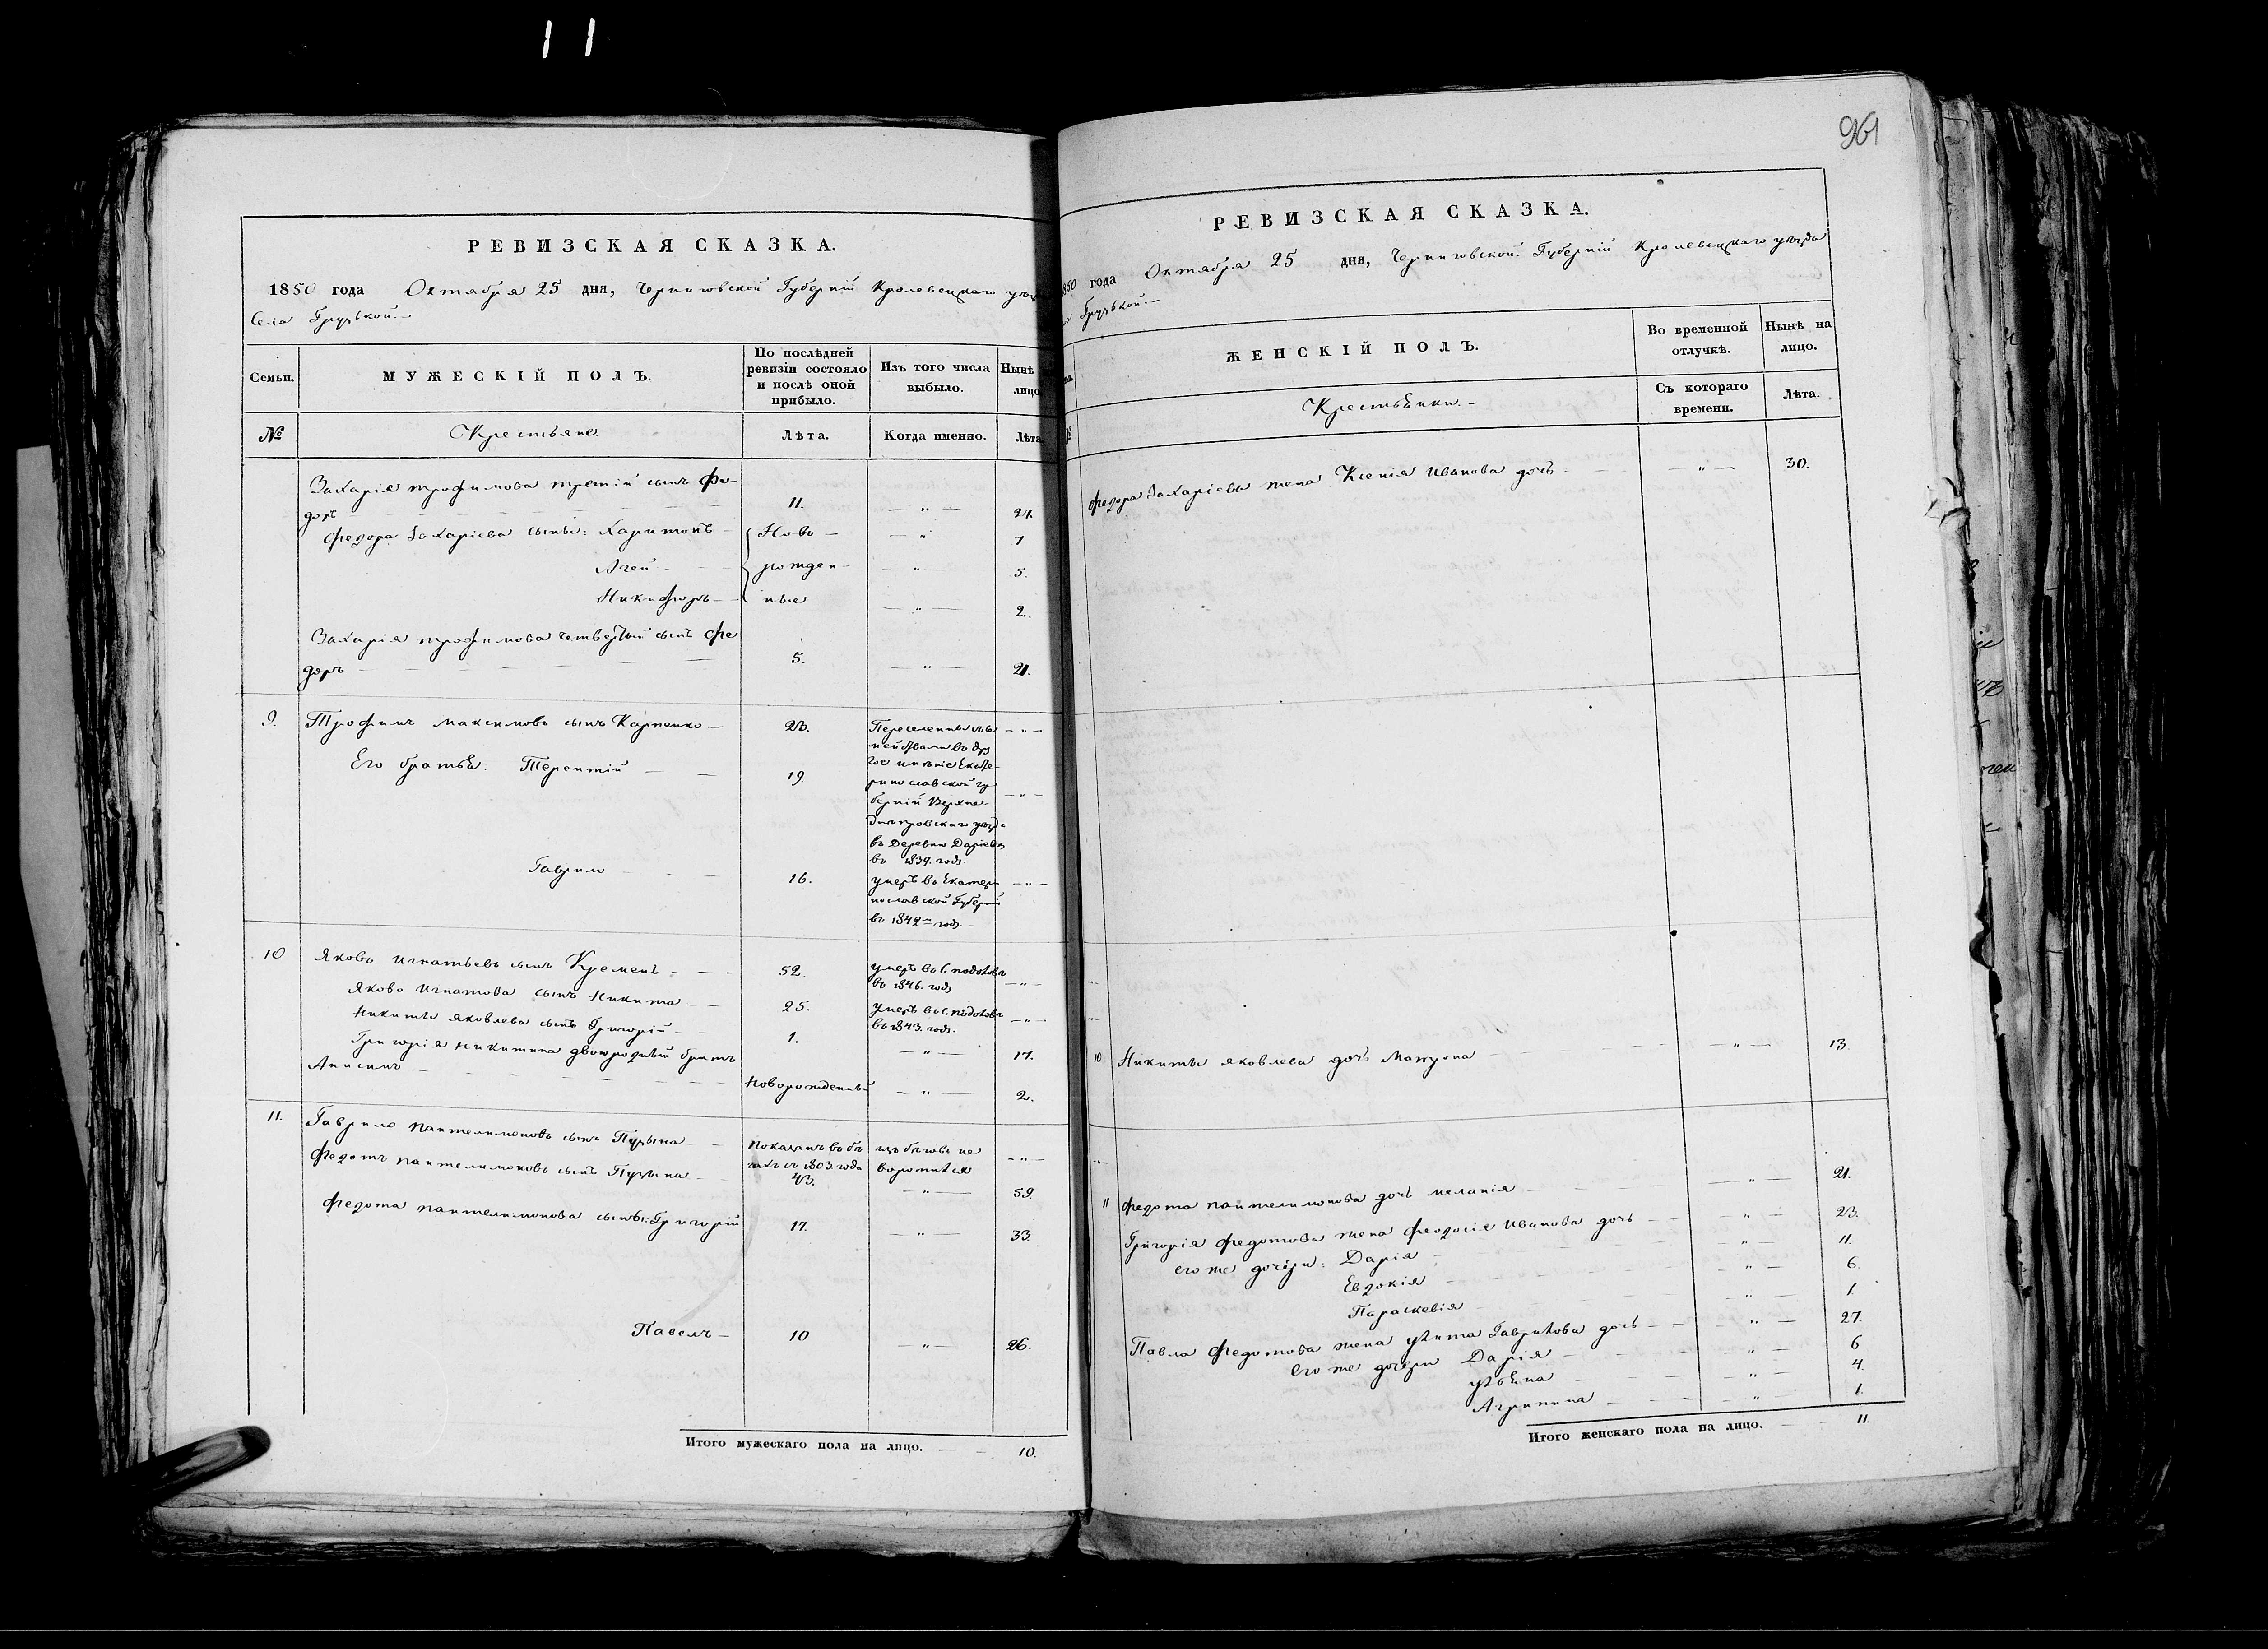 11
РЕВИЗСКАЯ СКАЗКА.
1850 года Октября 25 дня, Черниговской Губерніи Кролевецкаго
Села Грузькой.
Семьи.
МУЖЕСКІЙ ПОЛЪ.
По послѣдней ревизіи состояло и послѣ оной прибыло.
Изъ того числа выбыло.
Нынѣ
лицо
№
Крестьяне.
Лѣта.
Когда именно.
Лѣта.
Захарія трофимова третій сынъ Фе-
доръ 11. — " — 27.
Федора Захаріева сынъ: Харитонъ — Ново — — " — 7
Агей — рожден — — " — 5.
Никифоръ — ные — " — 2.
Захарія трофимова четвертый сынъ Фе
доръ 5. — " — 21.
9. Трофимъ Максимовъ сынъ Карпенко — 23.
Его братья. Терентій — — 19
Гаврило — — 16.
Переселенны
имѣніе Екате-
ринославской гу
берніи Верхне-
днѣпровскаго уѣзда
въ Деревню
въ 1839. году.
умеръ въ Екатери
нославской Губерніи
въ 1842 году.
10 Яковъ Игнатьевъ сынъ Кремень — — 52. умеръ въ
въ 1846. году — " —
Якова Игнатова сынъ Никита — 25. умеръ въ
въ 1843. году. — " —
Никиты Яковлева сынъ Григорій — 1. — " — 17.
Григорія Никитина двоюродный братъ
Анисимъ Новорожденный — " — 2.
11. Гаврило Пантелимоновъ сынъ Пузына — показанъ въ бѣ
гахъ съ 1803. года изъ бѣговъ не
воротился — " —
Федотъ Пантелимоновъ сынъ Пузына 43. — " — 59.
Федота Пантелимонова сыны: Григорій 17. — " — 33.
Павелъ — 10 — " — 26.
Итого мужескаго пола на лицо. — — 10.
961
РЕВИЗСКАЯ СКАЗКА.
1850 года Октября 25 дня, Черниговской Губерніи Кролевецкаго уѣзда
Грузькой.—
ЖЕНСКІЙ ПОЛЪ.
Во временной отлучкѣ.
Нынѣ на лицо.
Крестьянки.—
Съ котораго времени.
Лѣта.
Федора Захаріева жена Ксенія Иванова дочь — — " — 30.
10 Никиты Яковлева дочь Матрона — " — 13.
11 Федота Пантелимонова дочь Меланія — " — 21.
Григорія Федотова жена Феодосія Иванова дочь — — " — 23.
его же дочери: Дарія — " — 11.
Евдокія — " — 6.
Параскевія — " — 1
Павла Федотова жена Гаврилова дочь — — — " — 27.
его же дочери Дарія — " — 6
Ульяна — " — 4.
Агрипина — — " — 1.
Итого женскаго пола на лицо. — — 11.